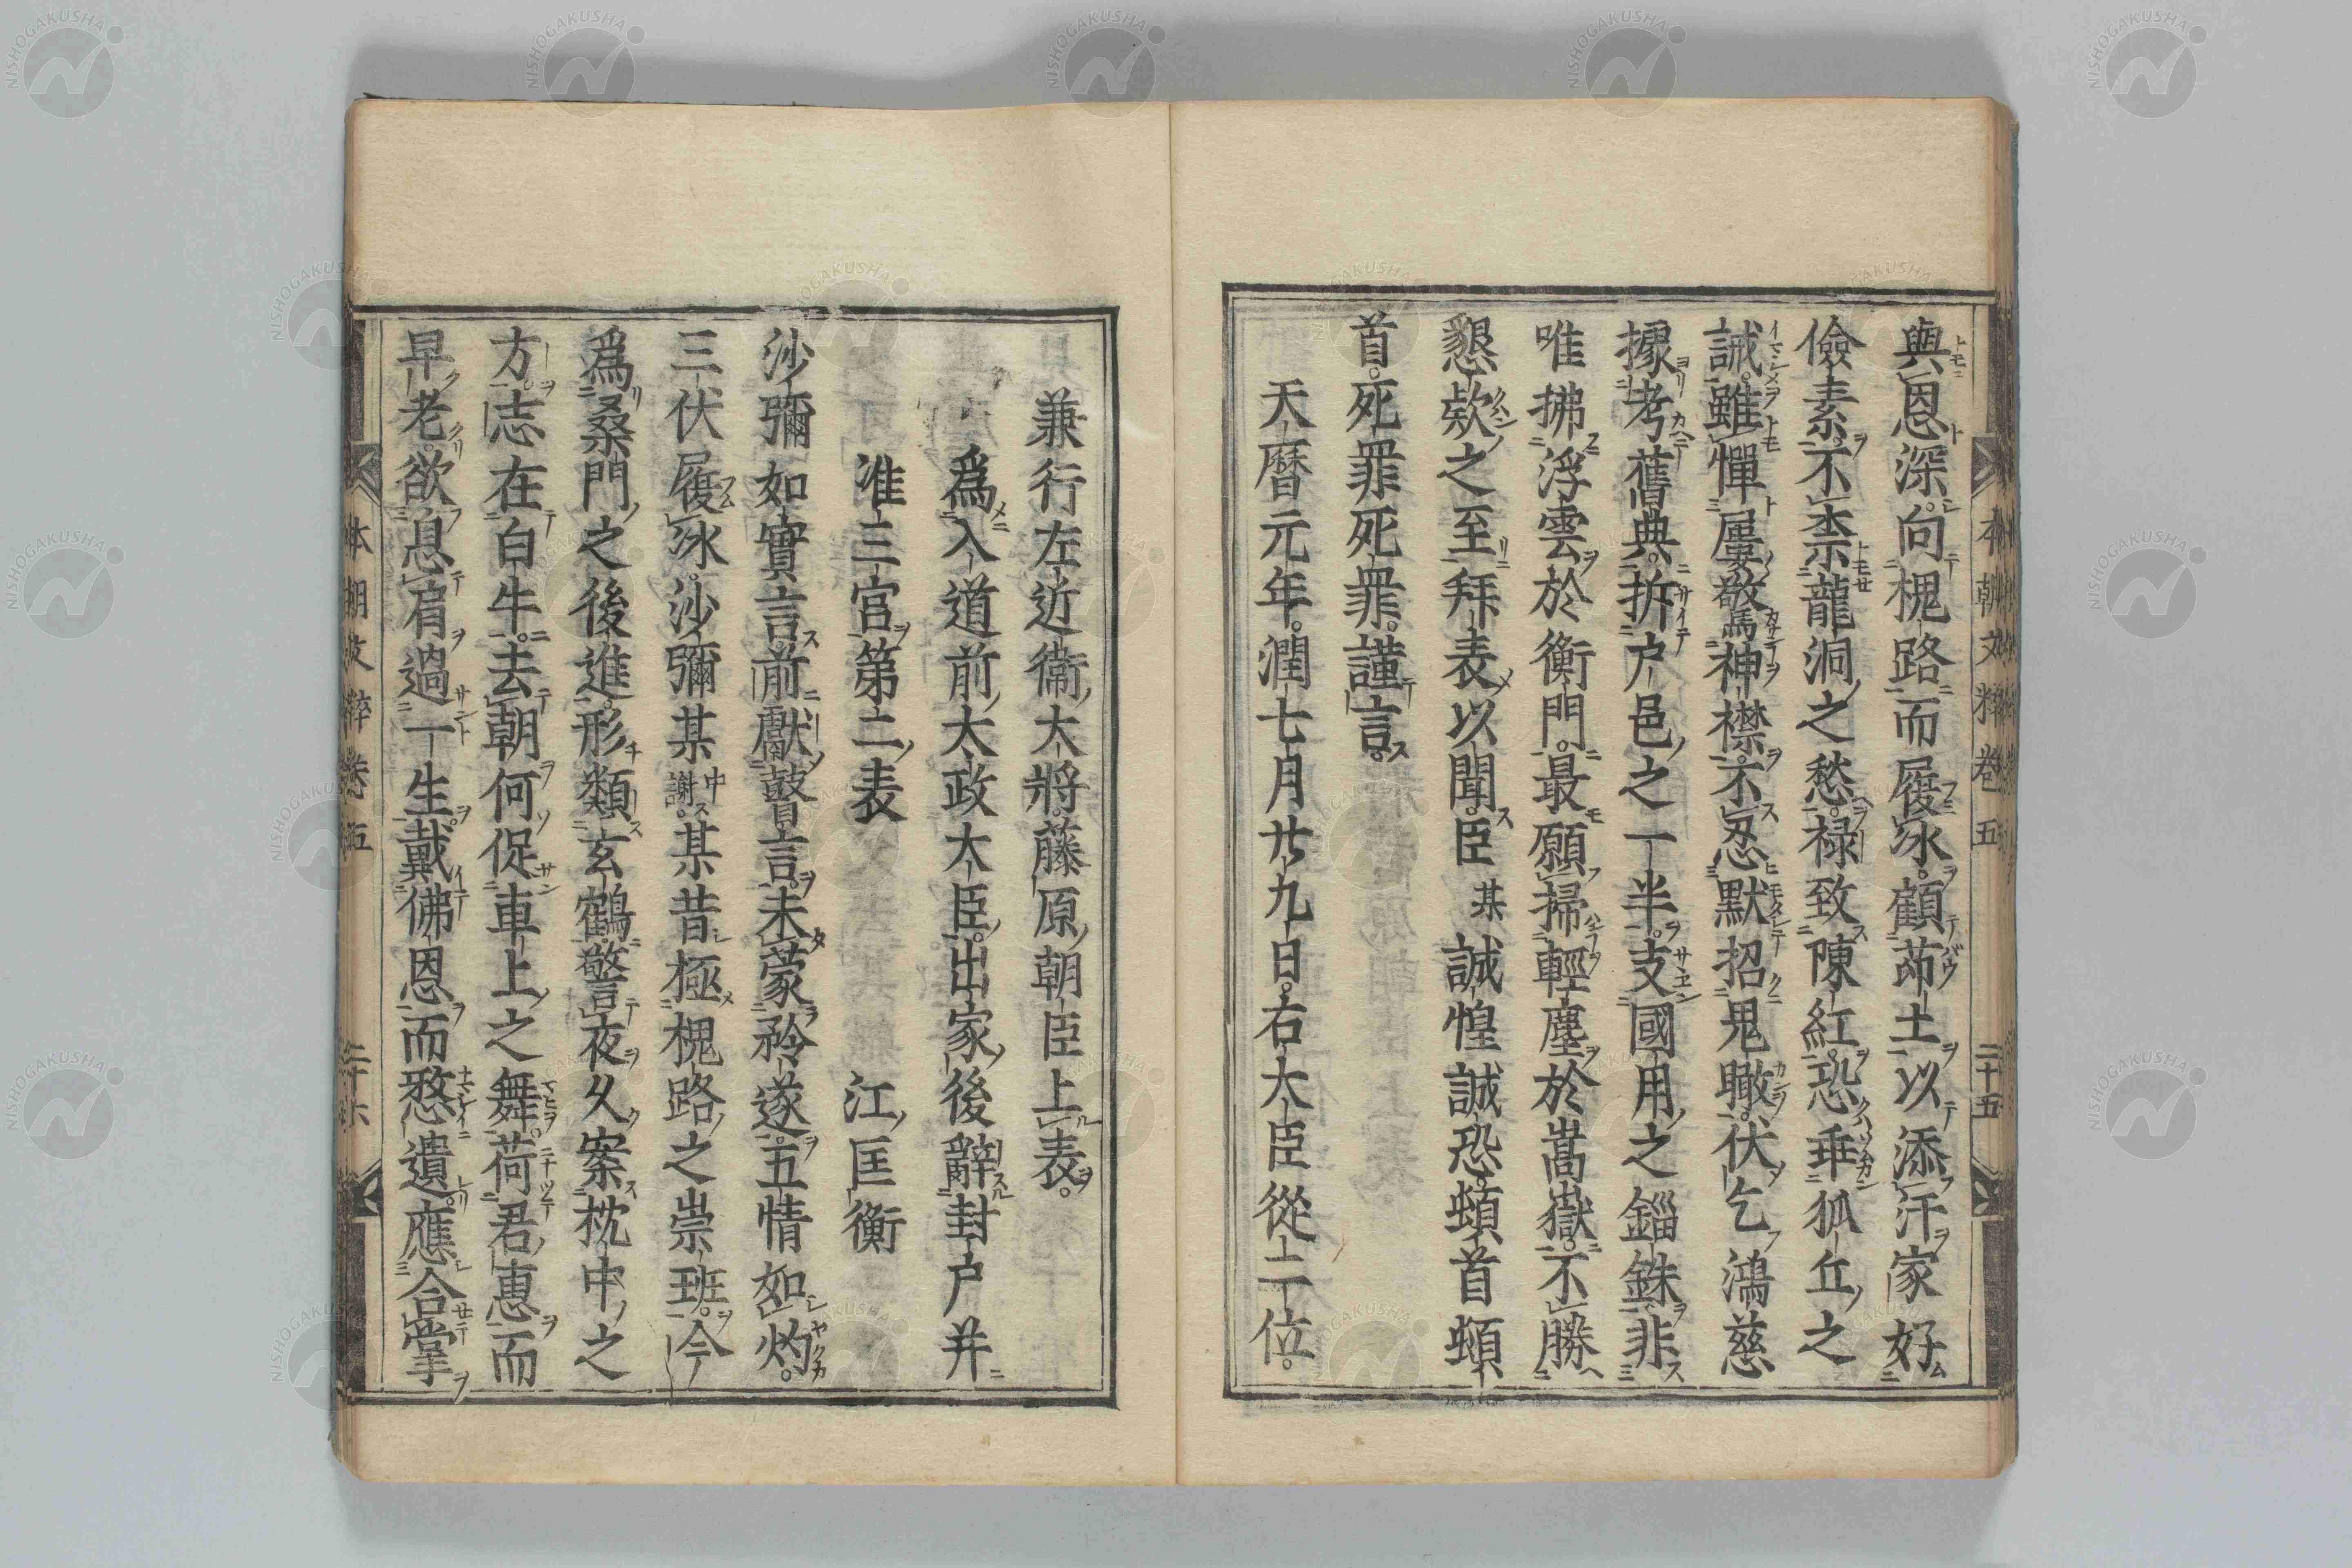 與恩深向槐路而履氷顧茆土以添汗家好
儉素不柰龍洞之愁禄致陳紅恐垂狐丘之
誡雖憚屢驚神襟不忍默招鬼瞰伏乞鴻慈
據考舊典折户邑之一半支國用之錙銖非
唯拂浮雲於衡門最願掃輕塵於嵩嶽不勝
懇欵之至拜表以聞臣某誠惶誠恐頓首頓
首死罪死罪謹言
天曆元年潤七月廿九日右大臣從二位
本朝文粹卷五 二十五
兼行左近衞大將藤原朝臣上表
爲入道前太政大臣出家後辭封户并
准三宮第二表 江匡衡
沙彌如實言前獻瞽言未蒙矜遂五情如灼
三伏履氷沙彌某中謝某昔極槐路之崇班今
爲桑門之後進形類玄鶴警夜久案枕中之
方志在白牛去朝何促車上之舞荷君恵而
早老欲息肩過一生戴佛恩而愁遺應合掌
本朝文粹卷五 二十六